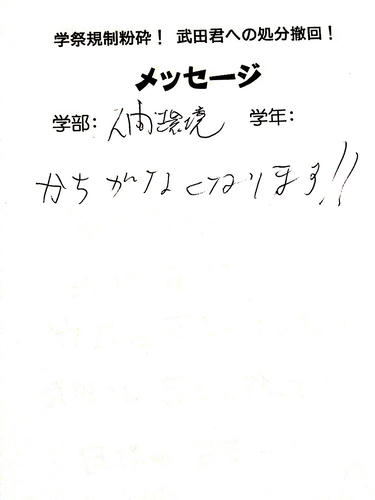 学祭規制粉砕！ 武田君への処分撤回！
メッセージ
学部: 人間環境 学年:
かちがなくなります!!